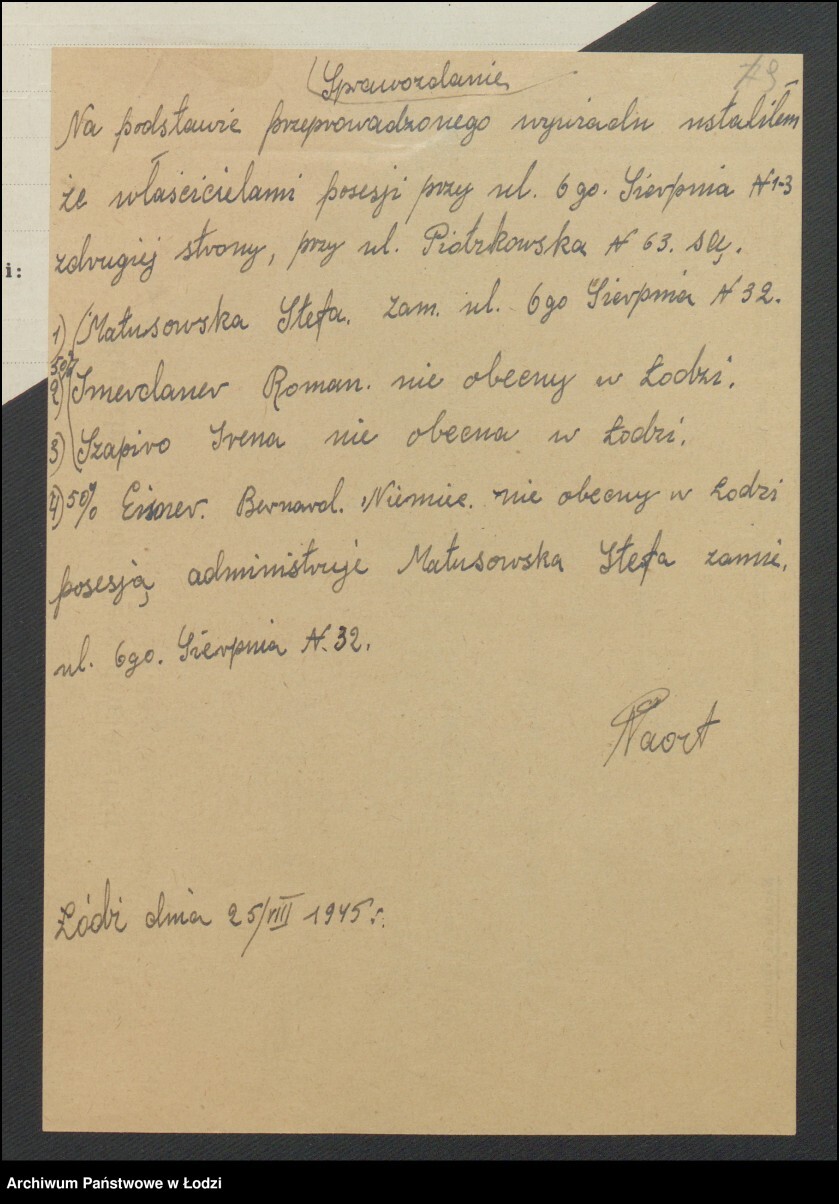 79
Sprawozdanie
Na podstawie przeprowadzonego wywiadu ustaliłem
że właścicielami posesji przy ul. 6go. Sierpnia N 1-3
zdrugiej strony, przy ul. Piotrkowska N 63. są.
i:
1) Matusowska Stefa. zam. ul. 6go Sierpnia N 32.
50%
2) Smerdaner Roman. nie obecny w Łodzi.
3) Szapiro Irena nie obecna w Łodzi.
4) 50% Bernard. Niemiec. nie obecny w Łodzi
posesją administruje Matusowska Stefa zamie.
ul. 6go. Sierpnia N. 32.
Łódź dnia 25/VIII 1945 r.
Archiwum Państwowe w Łodzi